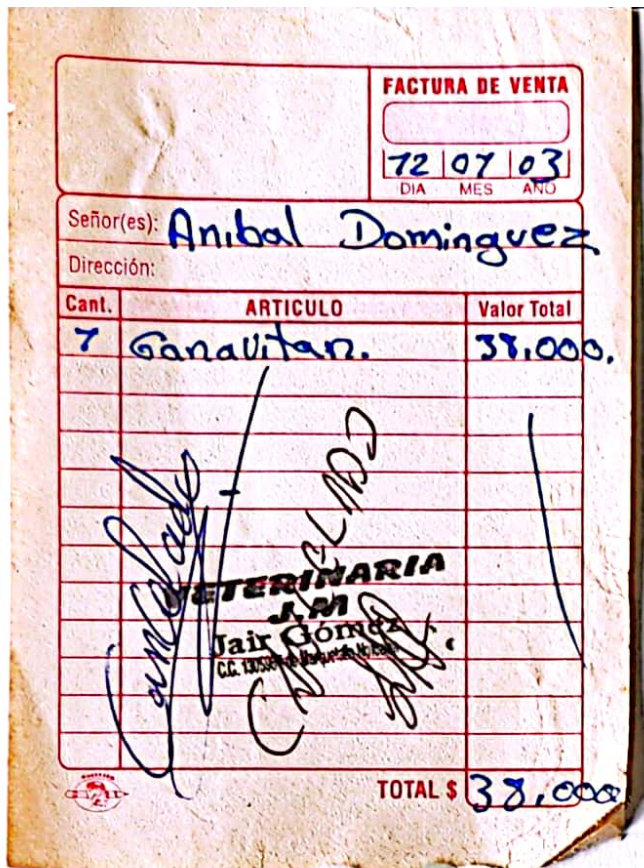 FACTURA DE VENTA
12 07 03
DIA MES AÑO
Señor(es): Anibal Dominguez
Dirección:
Cant. ARTICULO Valor Total
1 Ganavitan. 38,000.
Cancelado
CANCELADO
VETERINARIA
J.M
Jair Gómez
C.C.
TOTAL $ 38,000